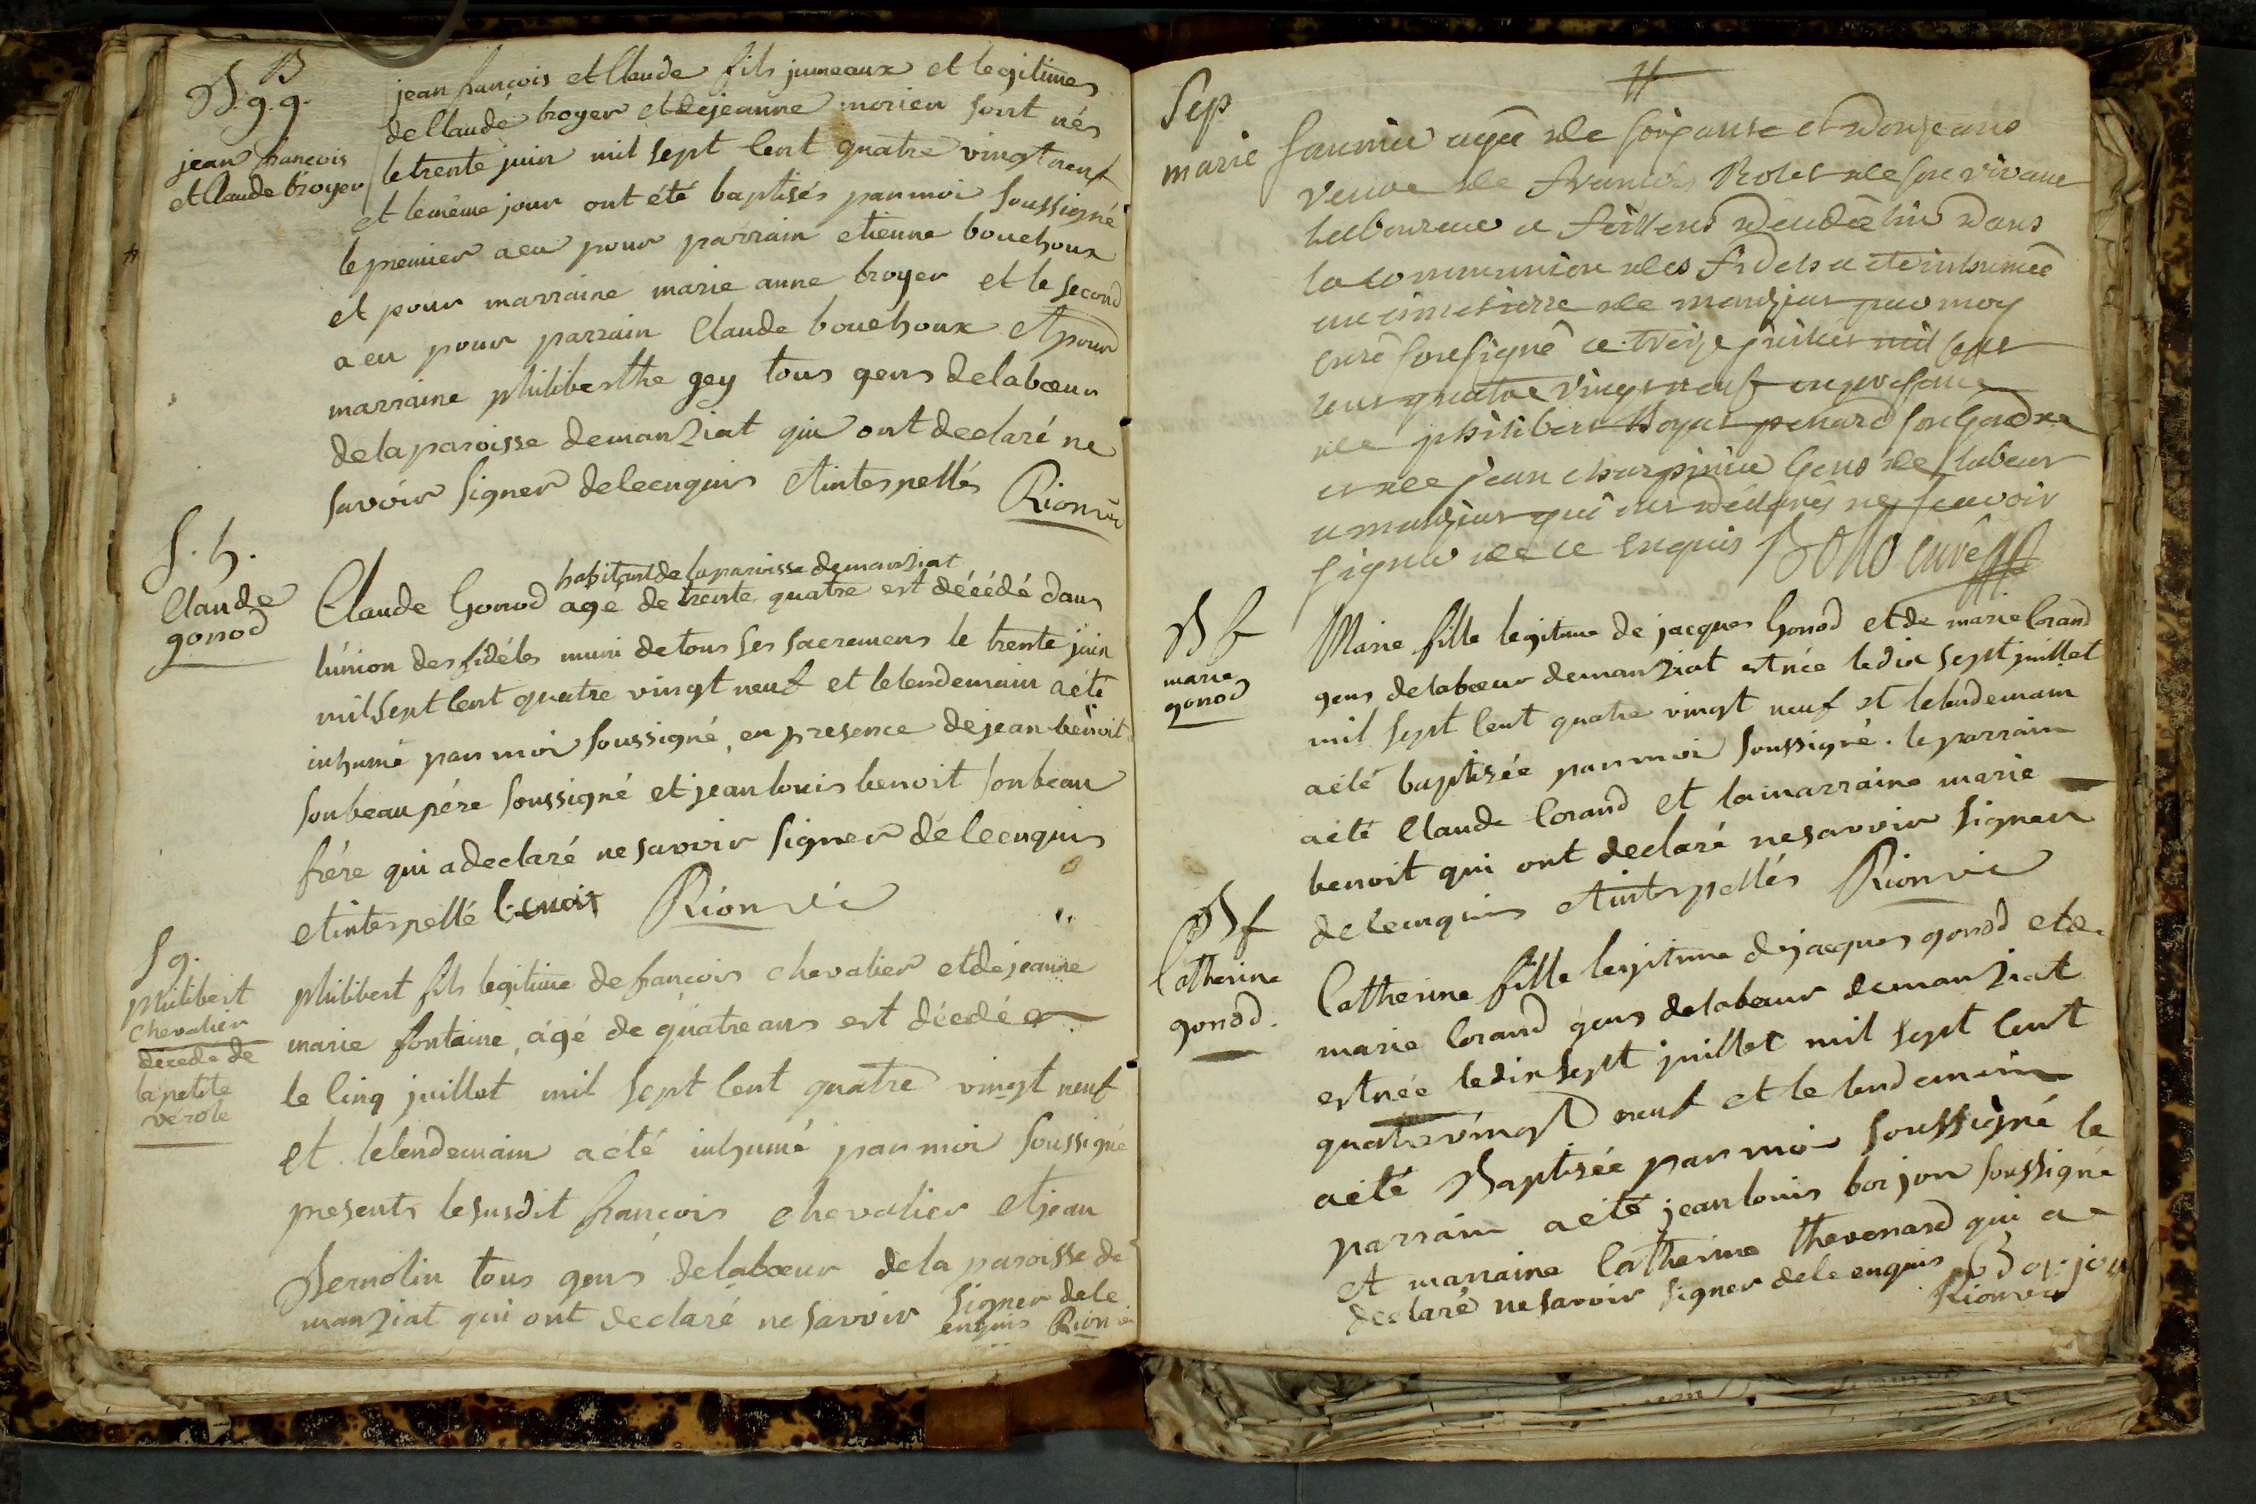 B
B. g. g.
jean francois
et Claude broyer
jean francois et Claude fils jumeaux et legitimes
de Claude broyer et de jeanne morier sont nés
le trente juin mil sept Cent quatre vingt neuf
et le même jour ont été baptisés par moi soussigné
le premier a eu pour parrain etienne bouchoux
et pour marraine marie anne broyer et le second
a eu pour parrain Claude bouchoux et pour
marraine philiberthe gey tous gens de labœur
de la paroisse de manziat qui ont declaré ne
savoir signer de ce enquis et interpellés Rion vic
S. h.
Claude
gonod
habitant de la paroisse de manziat
Claude Gonod age de trente quatre est décédé dans
l'union des fidéles muni de tous ses sacremens le trente juin
mil sept Cent quatre vingt neuf et le lendemain a été
inhumé par moi soussigné, en presence de jean benoit
son beau pére soussigné et jean louis benoit son beau
frére qui a declaré ne savoir signer de ce enquis
et interpellé benoit Rion vic
S g.
philibert
chevalier
decede de
la petite
verole
philibert fils legitime de francois chevalier et de jeanne
marie fontaine, agé de quatre ans est décédé
le Cinq juillet mil sept Cent quatre vingt neuf
et le lendemain a été inhumé par moi soussigné
presents le susdit francois chevalier et jean
Bernolin tous gens de labœur de la paroisse de
manziat qui ont declaré ne savoir signer de ce
enquis Rion vic
Sep
marie
agée de soixante et onze ans
veuve de francois Rolet de son vivant
laboureur a décédée hier dans
la communion des fidels a été inhumée
au cimetierre de manziat par moy
curé soussigné ce treize juillet mil sept
cent quatre vingt neuf en presence
de philibert Boyat penard son Gendre
et de jean charpinne Gens de labeur
a manziat qui ont déclarés ne scavoir
signer de ce enquis curé
B f
marie
gonod
Marie fille legitime de jacques Gonod et de marie Corand
gens de labœur de manziat est née le dix sept juillet
mil sept Cent quatre vingt neuf et le lendemain
a été baptisée par moi soussigné. le parrain
a été Claude Corand et la marraine marie
benoit qui ont declaré ne savoir signer
de ce enquis et interpellés Rion vic
B f
Catherine
gonod.
Catherine fille legitime de jacques gonod et de
marie Corand gens de labœur de manziat
est née le dix sept juillet mil sept Cent
quatre vingt neuf et le lendemain
a été Baptisée par moi soussigné le
parrain a été jean louis borjon soussigné
et marraine Catherine thevenard qui a
declaré ne savoir signer de ce enquis Borjon
Rion vic